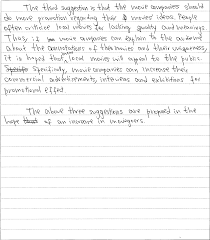 The third suggestion is that the movie companies should
do more promotion regarding their movies' ideas. People
often criticize local movies for lacking quality and meanings.
Thus, if movie companies can explain to the audience
about the connotations of their movies and their uniqueness,
it is hoped that local movies will appeal to the public.
Specifically, movie companies can increase their
commercial advertisements, interviews and exhibitions for
promotional effect.
The above three suggestions are proposed in the
hope of an increase in moviegoers.